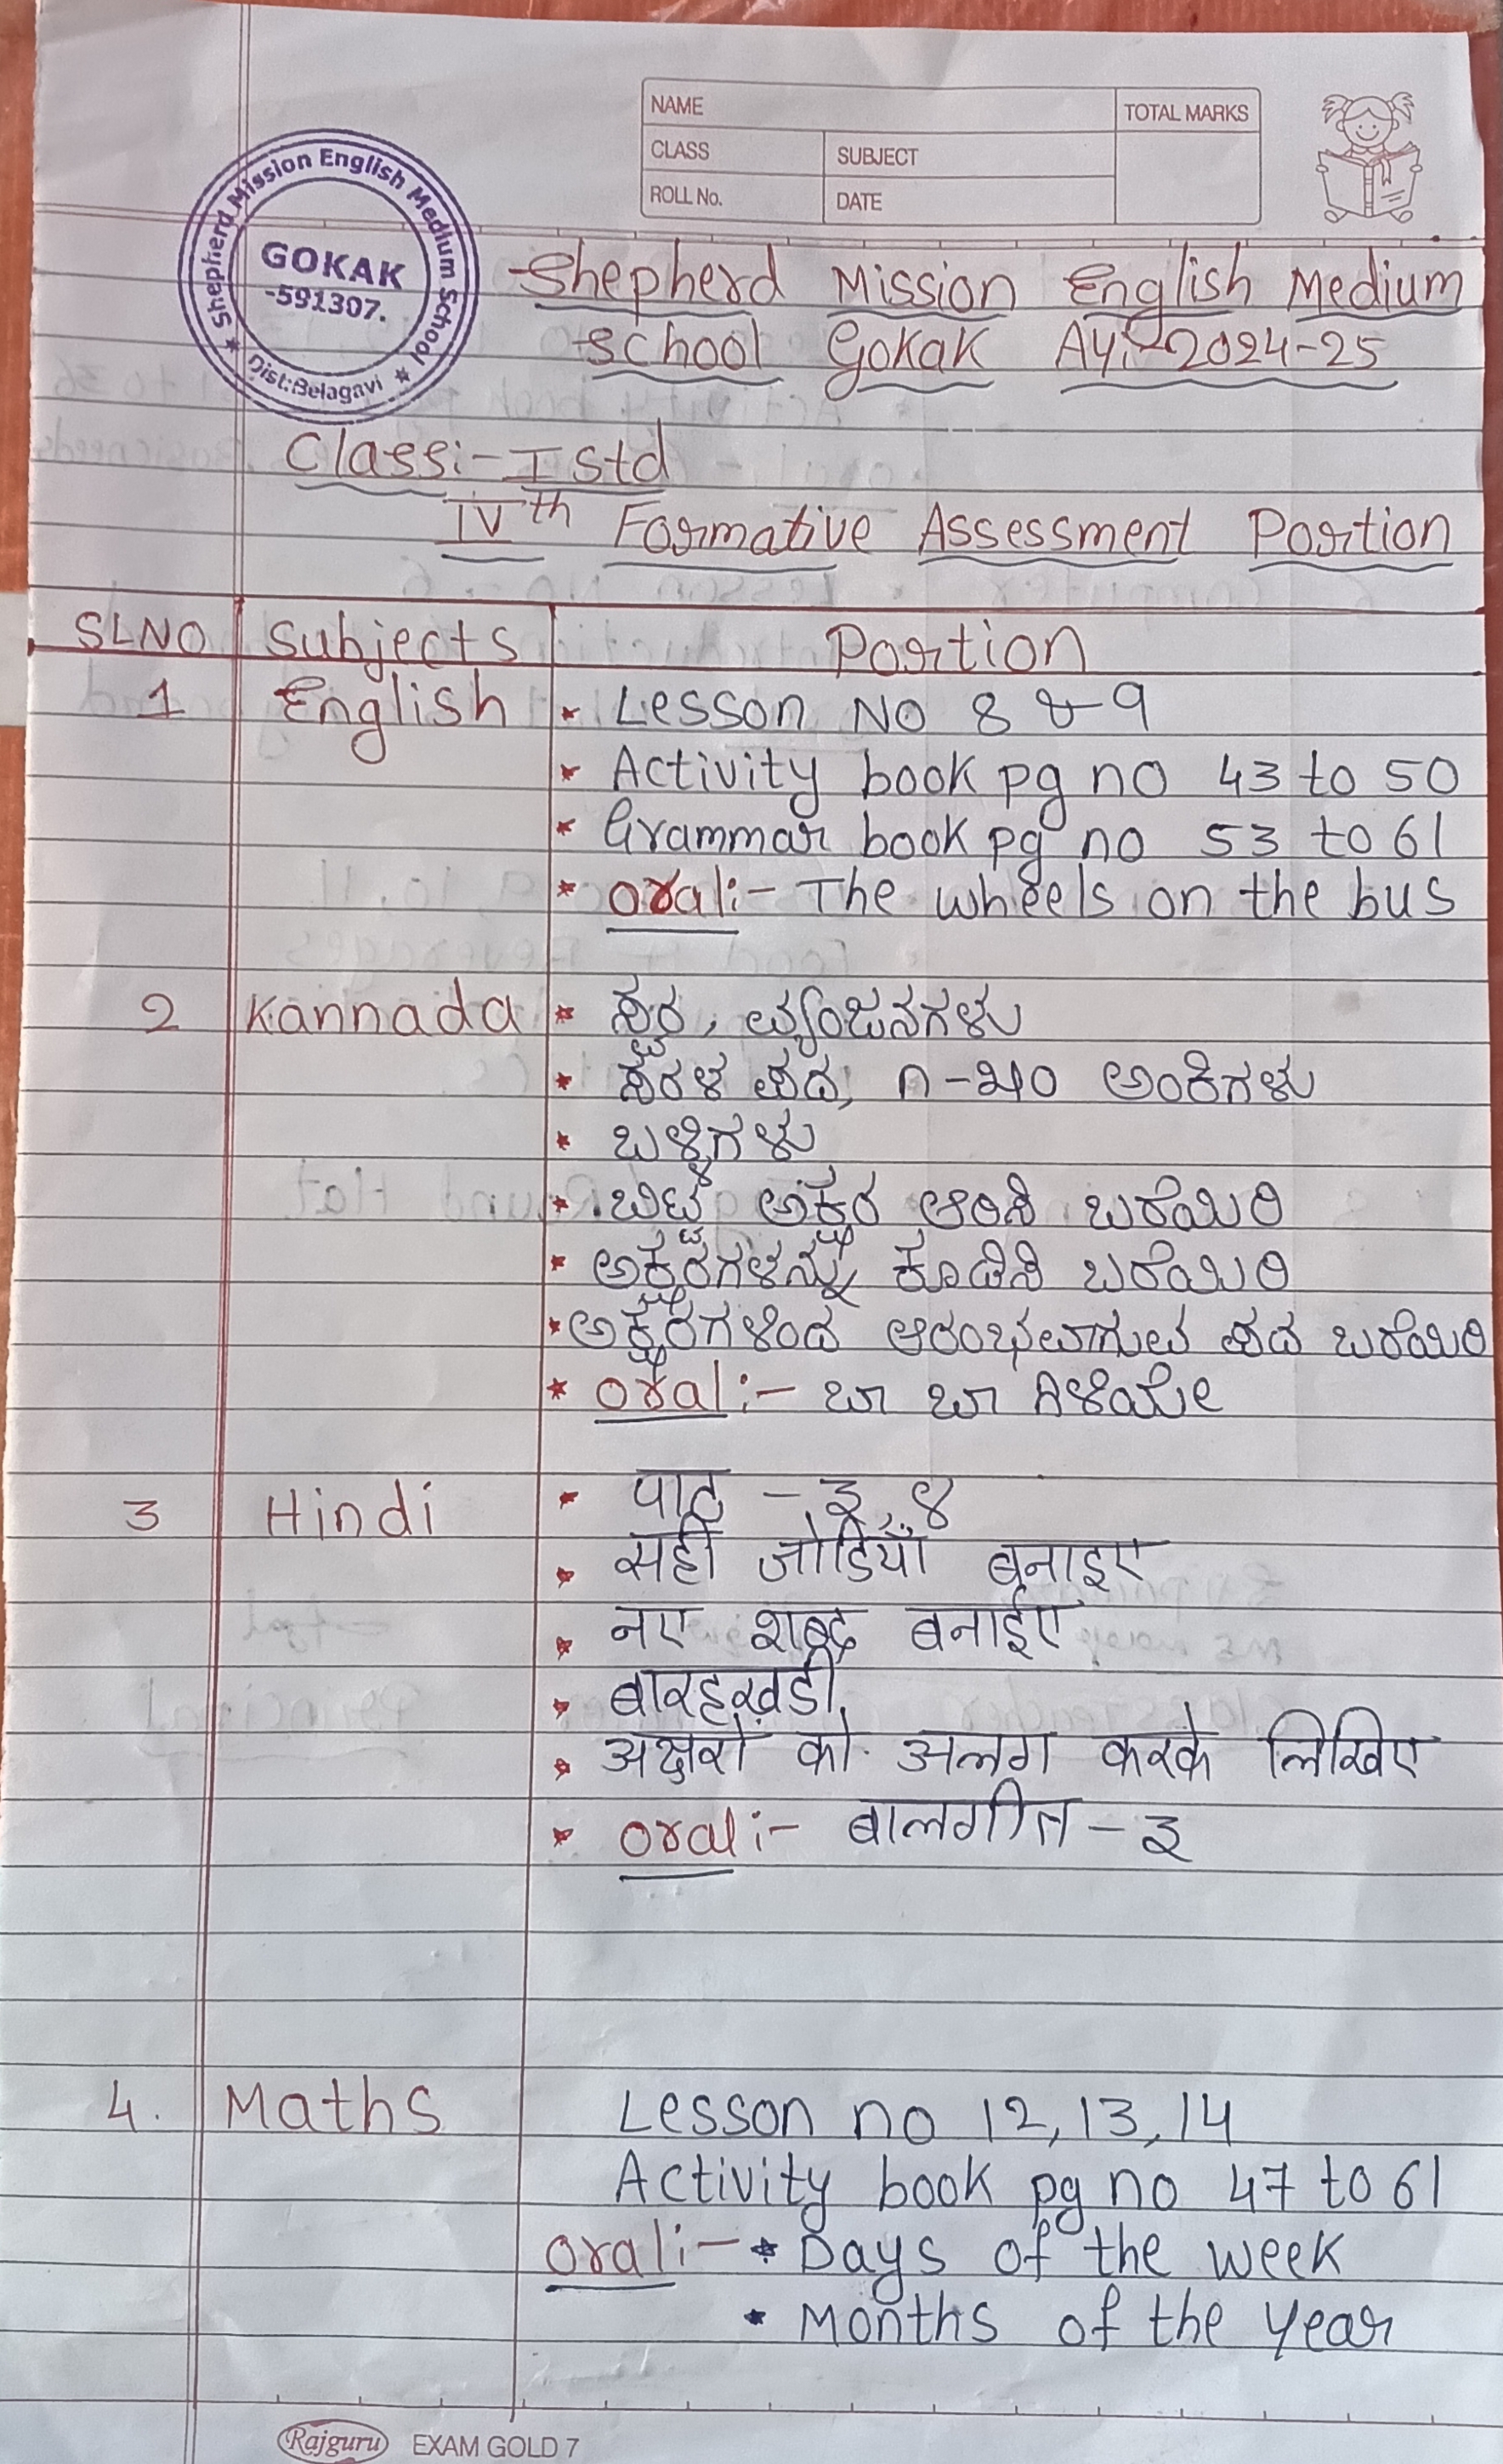 NAME
TOTAL MARKS
CLASS
SUBJECT
ROLL No.
DATE
Shepherd Mission English Medium School
GOKAK
-591307.
Dist:Belagavi
Shepherd Mission English Medium
School Gokak AY:-2024-25
Class:- I std
IVth Formative Assessment Portion
SLNO Subjects Portion
1 English * Lesson NO 8 & 9
* Activity book pg no 43 to 50
* Grammar book pg no 53 to 61
* Oral:- The wheels on the bus
2 Kannada * ಸ್ವರ, ವ್ಯಂಜನಗಳು
* ಸರಳ ಪದ, ೧-೫೦ ಅಂಕಿಗಳು
* ಬಳ್ಳಿಗಳು
* ಬಿಟ್ಟ ಅಕ್ಷರ ಆರಿಸಿ ಬರೆಯಿರಿ
* ಅಕ್ಷರಗಳನ್ನು ಕೂಡಿಸಿ ಬರೆಯಿರಿ
* ಅಕ್ಷರಗಳಿಂದ ಆರಂಭವಾಗುವ ಪದ ಬರೆಯಿರಿ
* Oral:- ಬಾ ಬಾ ಗಿಳಿಯೇ
3 Hindi * पाठ - ३, ४
* सही जोडियाँ बनाइए
* नए शब्द बनाईए
* बारहखडी
* अक्षरों को अलग करके लिखिए
* Oral:- बालगीत - ३
4. Maths Lesson no 12, 13, 14
Activity book pg no 47 to 61
Oral:- * Days of the week
* Months of the year
Rajguru EXAM GOLD 7